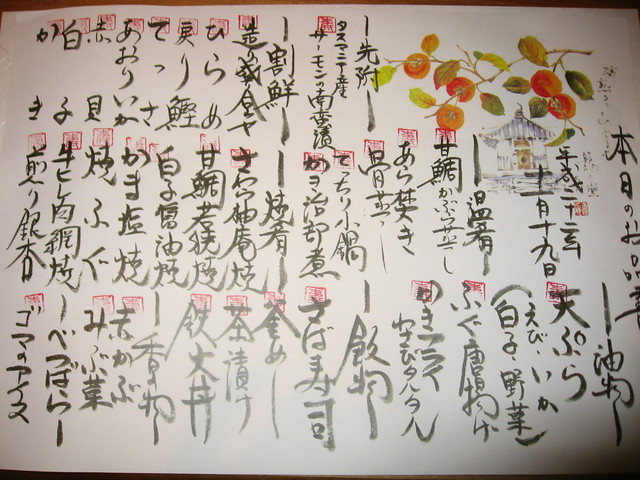 本日のお品書
平成二十二年
十一月十九日
―先附―
タスマニア産
サーモンの南蛮漬
―割鮮―
造り盛り合せ
ひらめ
戻り鰹
てっさ
あおりいか
赤貝
白子
かき
―温肴―
甘鯛かぶら蒸し
あら焚き
骨蒸し
てっちり小鍋
かき治部煮
―焼肴―
さわら柚庵焼
甘鯛若狭焼
白子醤油焼
かま塩焼
焼ふぐ
牛ヒレ肉網焼
煎り銀杏
―油物―
天ぷら
(えび・いか
白子・野菜)
ふぐ唐揚げ
かきフライ
わさびタルタル
―飯物―
さば寿司
釜めし
茶漬け
鉄火丼
―香の物―
赤かぶ
みぶ菜
―べつばら―
ゴマのアイス